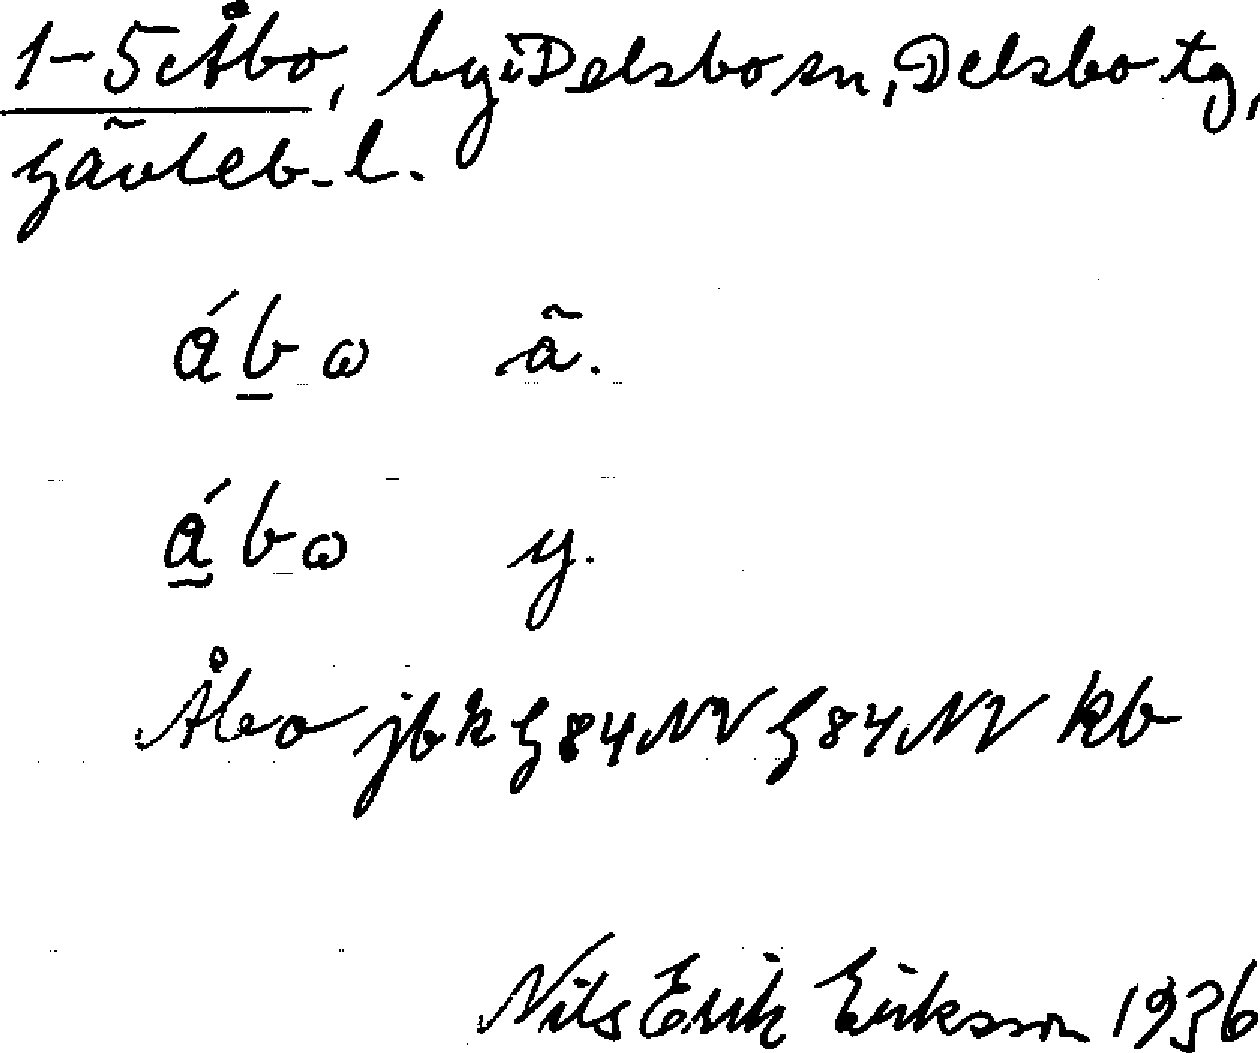 1-5 Åbo, by i Delsbo sn, Delsbo tg,
Gävleb. l.
ábω ä.
ábω y.
Åbo jbk G 84 NV G 84 NV kb
Nils Erik Eriksson 1936